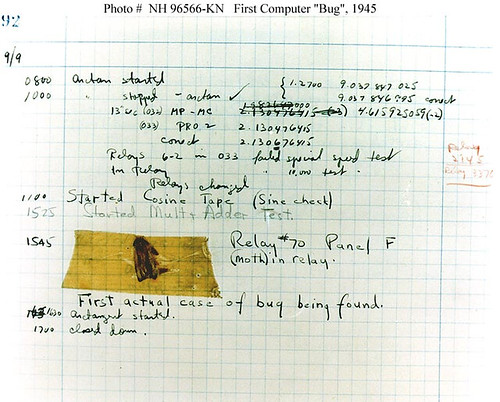 Photo # NH 96566-KN First Computer "Bug", 1945
92
9/9
0800 antan started
1000 " stopped - antan ✓ { 1.2700 9.037 847 025
9.037 846 995 correct
13" UC (032) MP - MC 2.130476415 4.615925059(-2)
(033) PRO 2 2.130476415
correct 2.130676415
Relays 6-2 in 033 failed special speed test
in Relay " 10,000 test.
Relay
2145
Relay 3370
Relays changed
1100 Started Cosine Tape (Sine check)
1525 Started Mult + Adder Test.
1545 Relay #70 Panel F
(moth) in relay.
First actual case of bug being found.
1630 antangent started.
1700 closed down.